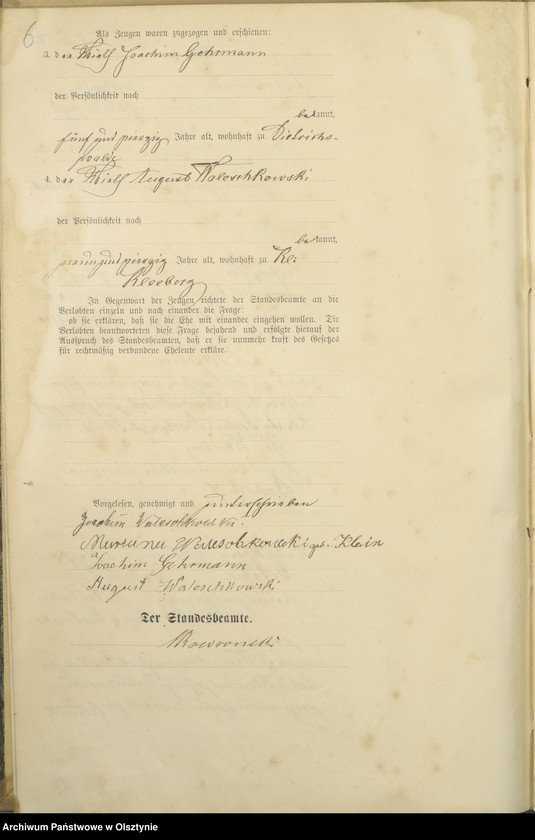 6
Als Zeugen waren zugezogen und erschienen:
3. der Wirth Joachim Gehrmann
der Persönlichkeit nach
bekannt,
fünf und vierzig Jahre alt, wohnhaft zu Dietrichs-
walde
4. der Wirth August Waleschkowski
der Persönlichkeit nach
bekannt,
neunundvierzig Jahre alt, wohnhaft zu Kl:
Kleeberg
In Gegenwart der Zeugen richtete der Standesbeamte an die
Verlobten einzeln und nach einander die Frage:
ob sie erklären, daß sie die Ehe mit einander eingehen wollen. Die
Verlobten beantworteten diese Frage bejahend und erfolgte hierauf der
Ausspruch des Standesbeamten, daß er sie nunmehr kraft des Gesetzes
für rechtmäßig verbundene Eheleute erkläre.
Vorgelesen, genehmigt und unterschrieben
Joachim Waleschkowski.
Waleschkowski geb. Klein
Joachim Gehrmann
August Waleschkowski
Der Standesbeamte.
Archiwum Państwowe w Olsztynie